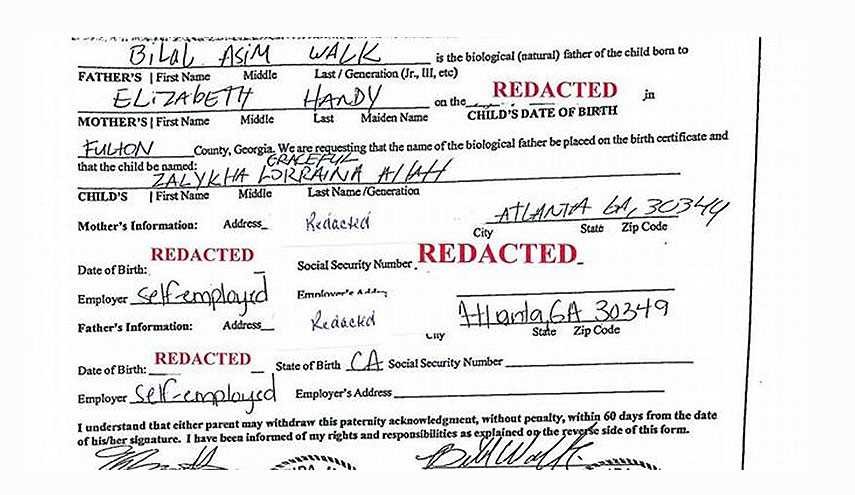 BILAL ASIM WALK is the biological (natural) father of the child born to
FATHER'S | First Name Middle Last / Generation (Jr., III, etc)
ELIZABETH HANDY on the REDACTED in
MOTHER'S | First Name Middle Last Maiden Name CHILD'S DATE OF BIRTH
FULTON County, Georgia. We are requesting that the name of the biological father be placed on the birth certificate and
that the child be named: GRACEFUL
ZALYKHA LORRAINA Allah
CHILD'S | First Name Middle Last Name /Generation
Mother's Information: Address Redacted ATLANTA GA, 30344
City State Zip Code
REDACTED REDACTED
Date of Birth: Social Security Number
Employer self-employed Employer's
Father's Information: Address Redacted Atlanta, GA 30349
City State Zip Code
REDACTED
Date of Birth: State of Birth CA Social Security Number
Employer self-employed Employer's Address
I understand that either parent may withdraw this paternity acknowledgment, without penalty, within 60 days from the date
of his/her signature. I have been informed of my rights and responsibilities as explained on the reverse side of this form.